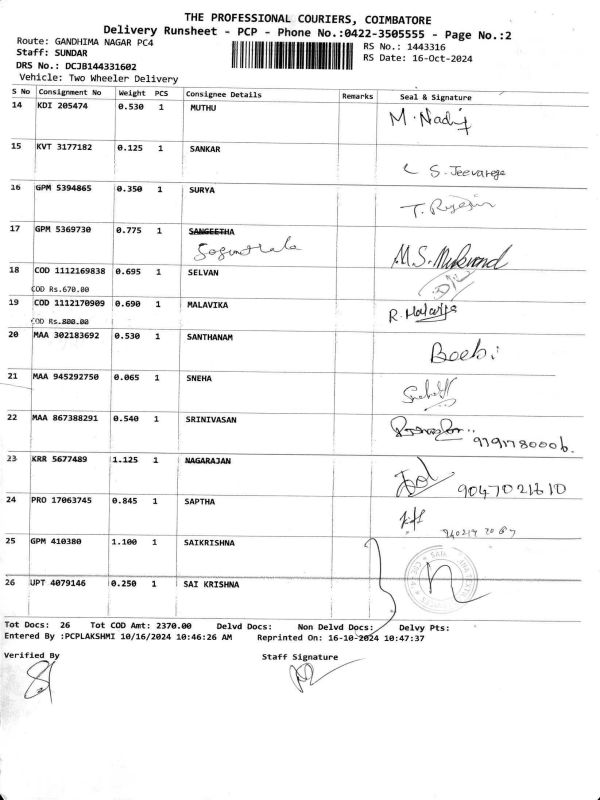 THE PROFESSIONAL COURIERS, COIMBATORE
Delivery Runsheet - PCP - Phone No.:0422-3505555 - Page No.:2
Route: GANDHIMA NAGAR PC4 RS No.: 1443316
Staff: SUNDAR RS Date: 16-Oct-2024
DRS No.: DCJB144331602
Vehicle: Two Wheeler Delivery
S No Consignment No Weight PCS Consignee Details Remarks Seal & Signature
14 KDI 205474 0.530 1 MUTHU
15 KVT 3177182 0.125 1 SANKAR
S. Jeevarega
16 GPM 5394865 0.350 1 SURYA
17 GPM 5369730 0.775 1 SANGEETHA
M.S. Mukund
18 COD 1112169838 0.695 1 SELVAN
COD Rs.670.00
19 COD 1112170909 0.690 1 MALAVIKA
COD Rs.800.00
20 MAA 302183692 0.530 1 SANTHANAM
Boebi
21 MAA 945292750 0.065 1 SNEHA
22 MAA 867388291 0.540 1 SRINIVASAN
9791780006.
23 KRR 5677489 1.125 1 NAGARAJAN
9047021610
24 PRO 17063745 0.845 1 SAPTHA
25 GPM 410380 1.100 1 SAIKRISHNA
26 UPT 4079146 0.250 1 SAI KRISHNA
Tot Docs: 26 Tot COD Amt: 2370.00 Delvd Docs: Non Delvd Docs: Delvy Pts:
Entered By :PCPLAKSHMI 10/16/2024 10:46:26 AM Reprinted On: 16-10-2024 10:47:37
Verified By Staff Signature